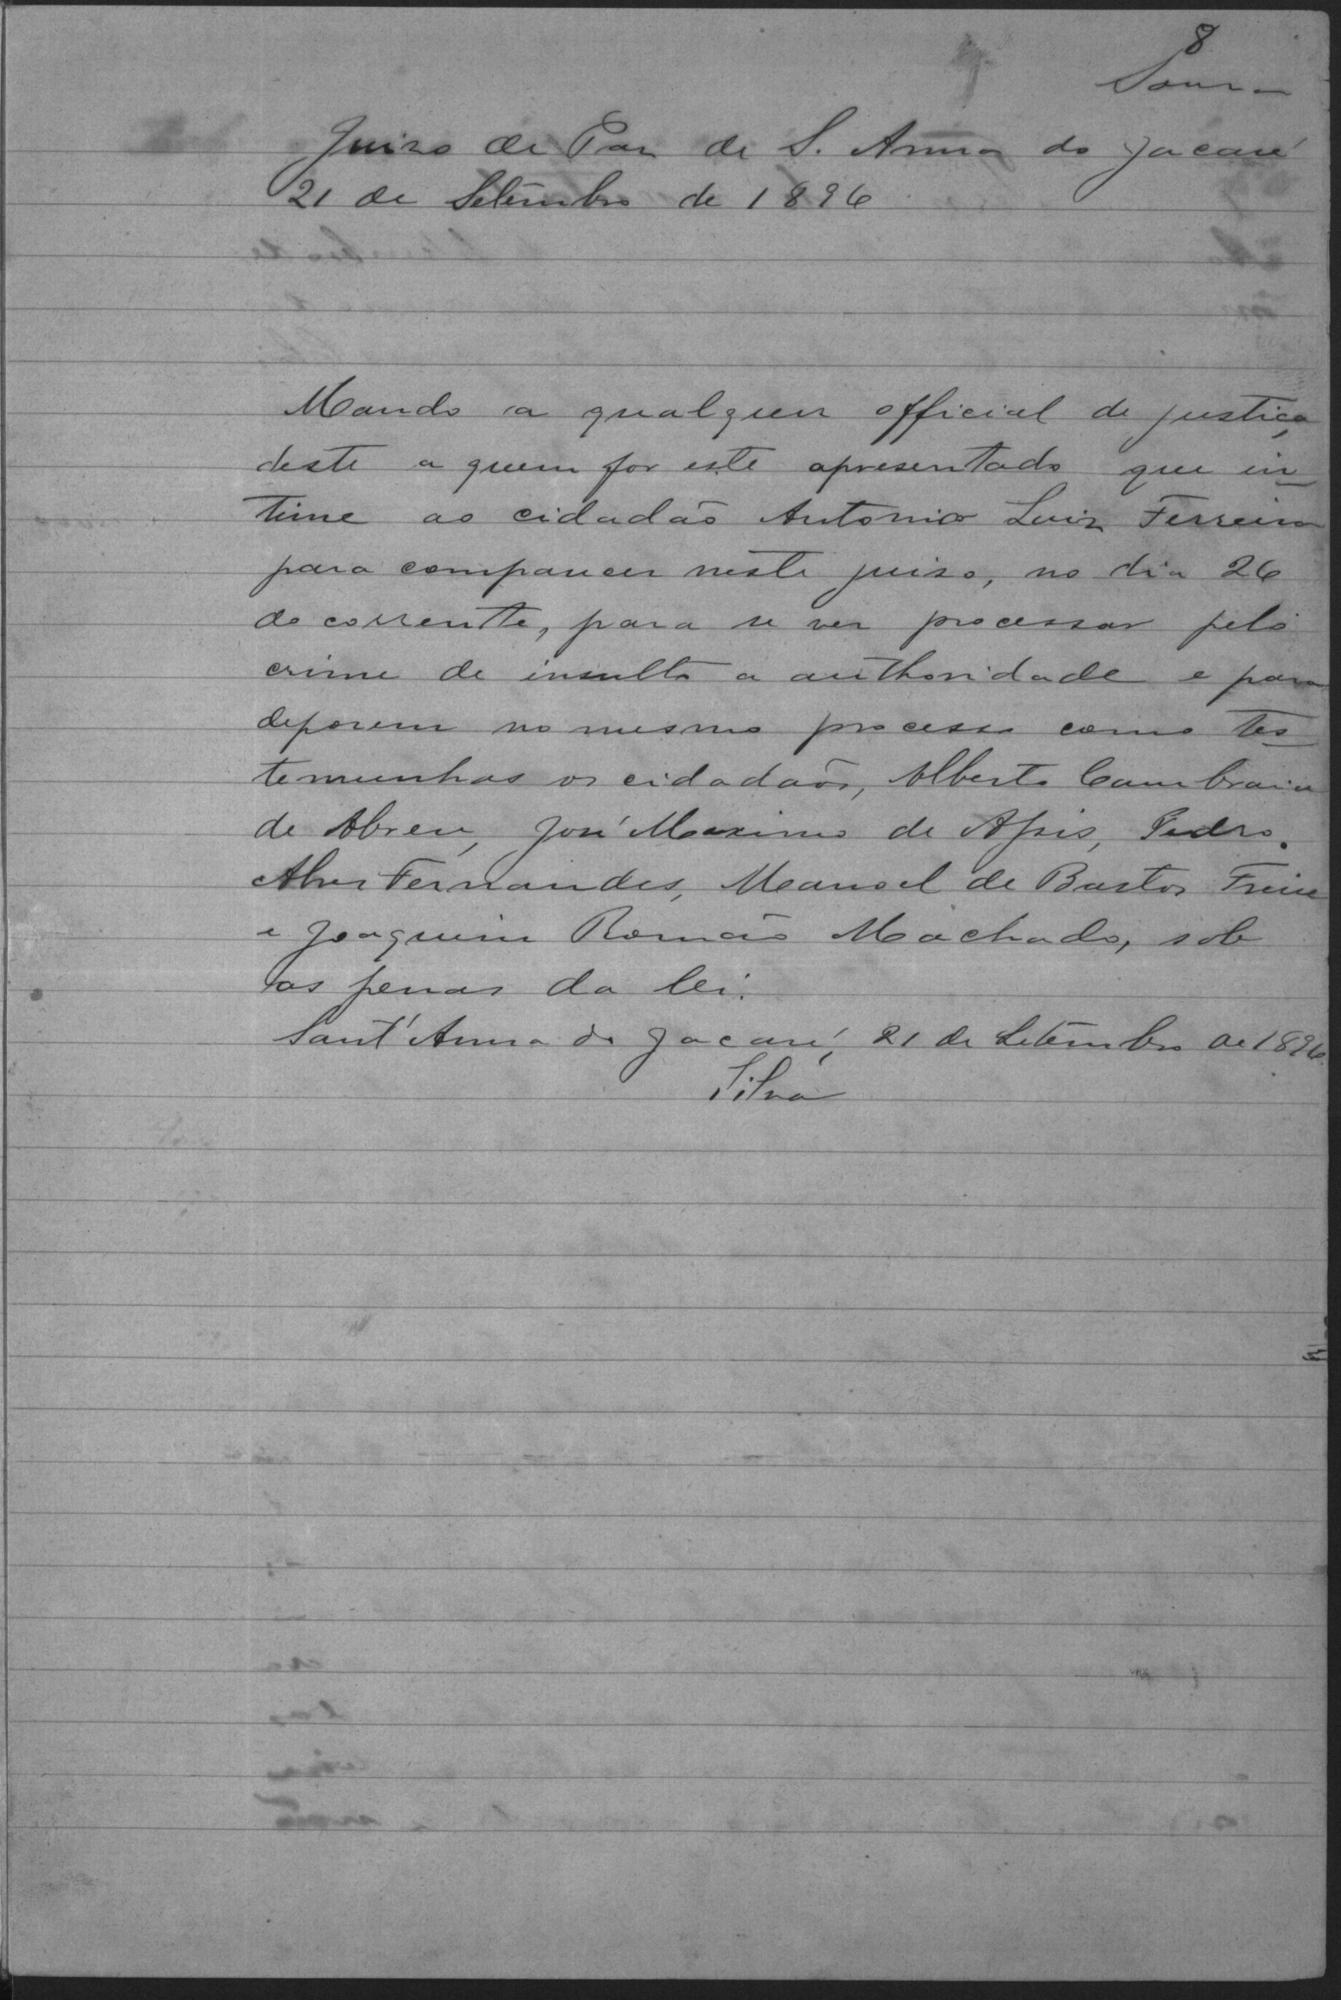 8
Souza
Juizo de Paz de S. Anna do Jacaré
21 de Setembro de 1896
Mando a qualquer official de justiça,
deste a quem for este apresentado que in-
time ao cidadão Antonio Luiz Ferreira
para comparecer neste juizo, no dia 26
do corrente, para se ver processar pelo
crime de insulto a authoridade e para
deporem no mesmo processo como tes-
temunhas os cidadãos, Alberto Cambraia
de Abreu, José Maximo de Assis, Pedro
Alves Fernandes, Manoel de Bastos Freire
e Joaquim Romão Machado, sob
as penas da lei.
Sant'Anna do Jacaré, 21 de Setembro de 1896.
Silva